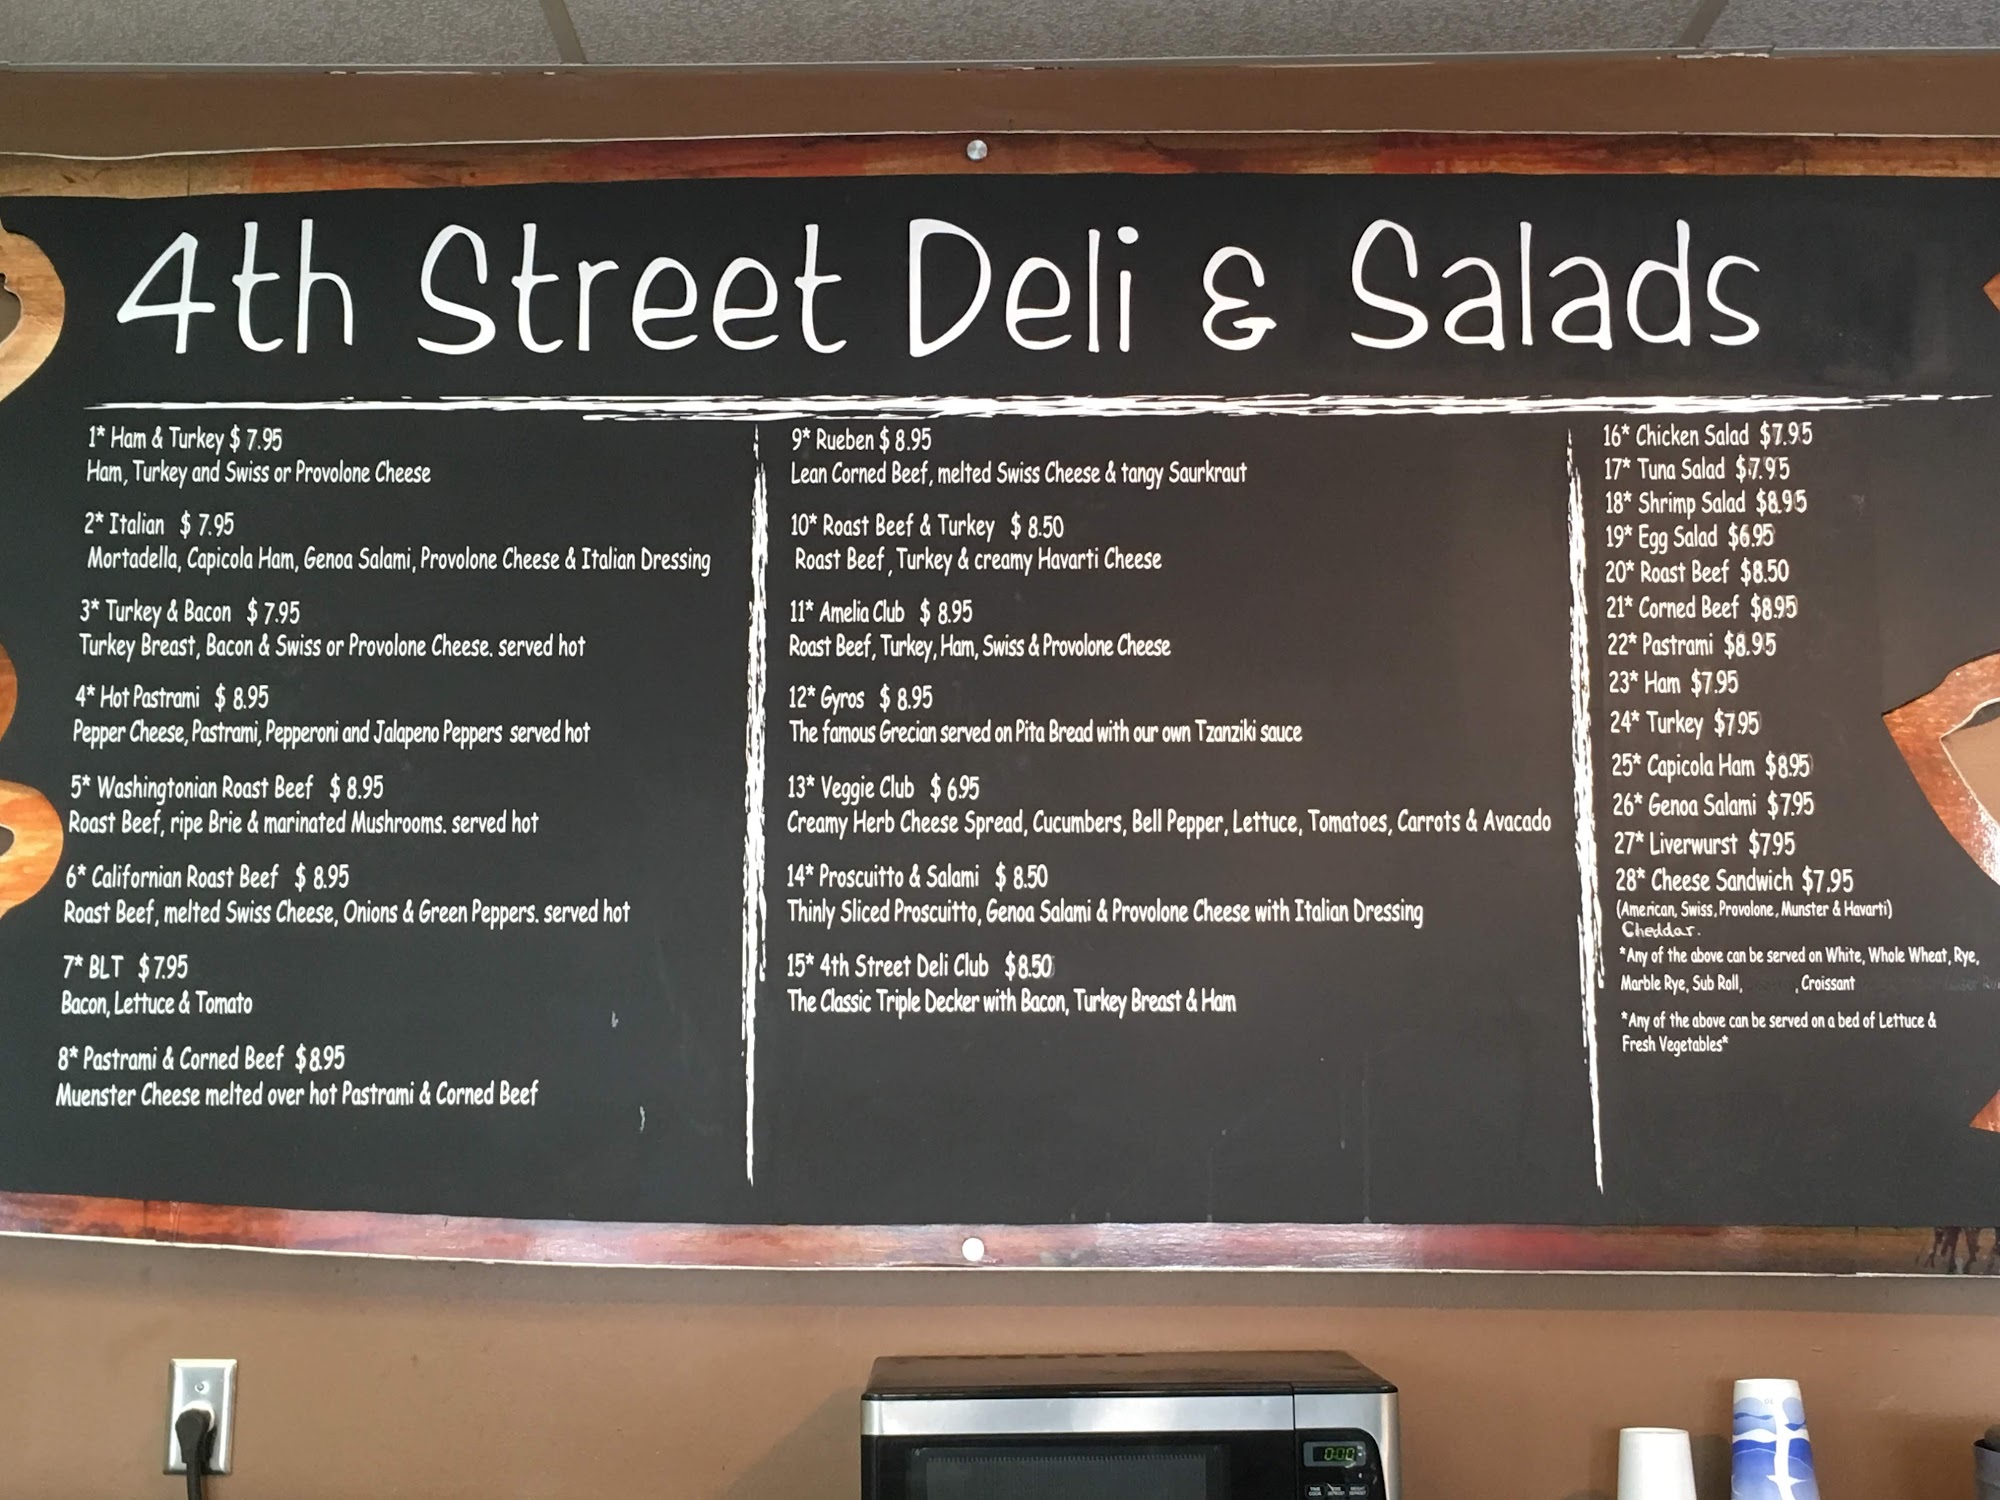 4th Street Deli & Salads
1* Ham & Turkey $ 7.95
Ham, Turkey and Swiss or Provolone Cheese
2* Italian $ 7.95
Mortadella, Capicola Ham, Genoa Salami, Provolone Cheese & Italian Dressing
3* Turkey & Bacon $ 7.95
Turkey Breast, Bacon & Swiss or Provolone Cheese. served hot
4* Hot Pastrami $ 8.95
Pepper Cheese, Pastrami, Pepperoni and Jalapeno Peppers served hot
5* Washingtonian Roast Beef $ 8.95
Roast Beef, ripe Brie & marinated Mushrooms. served hot
6* Californian Roast Beef $ 8.95
Roast Beef, melted Swiss Cheese, Onions & Green Peppers. served hot
7* BLT $7.95
Bacon, Lettuce & Tomato
8* Pastrami & Corned Beef $8.95
Muenster Cheese melted over hot Pastrami & Corned Beef
9* Rueben $ 8.95
Lean Corned Beef, melted Swiss Cheese & tangy Saurkraut
10* Roast Beef & Turkey $ 8.50
Roast Beef, Turkey & creamy Havarti Cheese
11* Amelia Club $ 8.95
Roast Beef, Turkey, Ham, Swiss & Provolone Cheese
12* Gyros $ 8.95
The famous Grecian served on Pita Bread with our own Tzanziki sauce
13* Veggie Club $ 6.95
Creamy Herb Cheese Spread, Cucumbers, Bell Pepper, Lettuce, Tomatoes, Carrots & Avacado
14* Proscuitto & Salami $ 8.50
Thinly Sliced Proscuitto, Genoa Salami & Provolone Cheese with Italian Dressing
15* 4th Street Deli Club $8.50
The Classic Triple Decker with Bacon, Turkey Breast & Ham
16* Chicken Salad $7.95
17* Tuna Salad $7.95
18* Shrimp Salad $8.95
19* Egg Salad $6.95
20* Roast Beef $8.50
21* Corned Beef $8.95
22* Pastrami $8.95
23* Ham $7.95
24* Turkey $7.95
25* Capicola Ham $8.95
26* Genoa Salami $7.95
27* Liverwurst $7.95
28* Cheese Sandwich $7.95
(American, Swiss, Provolone, Munster & Havarti)
Cheddar.
*Any of the above can be served on White, Whole Wheat, Rye,
Marble Rye, Sub Roll, , Croissant
*Any of the above can be served on a bed of Lettuce &
Fresh Vegetables*
0:00